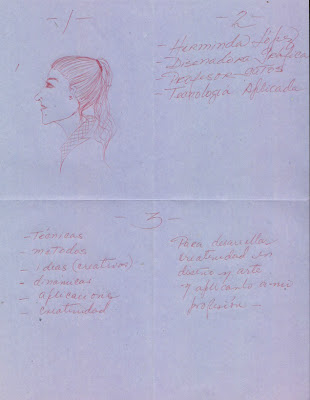 -1-
-2-
- Herminda López
- Diseñadora Gráfica
- Profesor
- Tecnología Aplicada
-3-
- Técnicas
- métodos
- ideas (creativos)
- dinamicas
- aplicaciones
- creatividad
Para desarrollar
creatividad en
diseño y arte
y aplicarlo a mi
profesión -